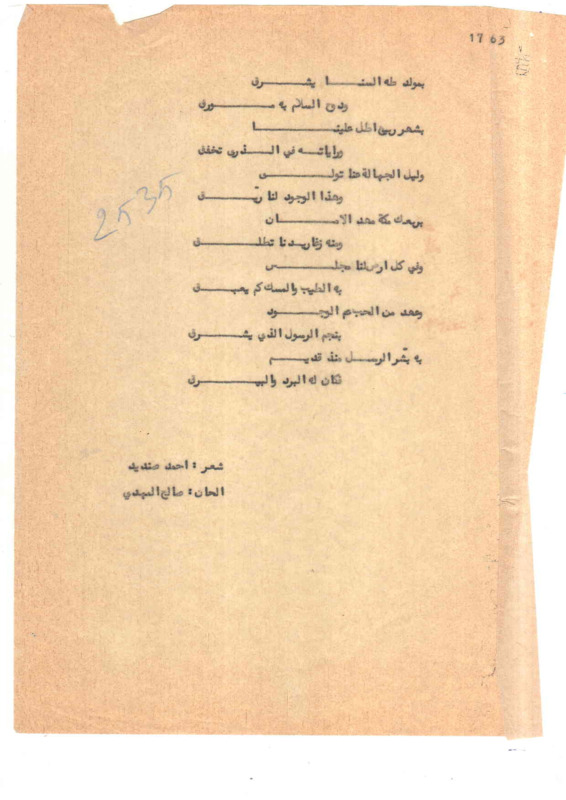 17 63
2535
بمولد طه السنـــا يشـــرق
ودوح السلام به مـــورق
بشهر ربيع اطل علينـــا
وراياتـــه في الـــذرى تخفق
وليل الجهالة عنا تولـــى
وهذا الوجود لنا ريّـــق
بربعك مكة مهد الامـــان
ومنه زغاريدنا تطلـــق
وفي كل ارض لنا مجلـــس
به الطيب والمسك كم يعبـــق
وعهد من الحب عم الوجـــود
بنجم الرسول الذي يشـــرق
به بشّر الرســـل منذ قديـــم
فكان له البرد والبيـــرق
شعر : احمد صنديد
الحان : صالح المهدي